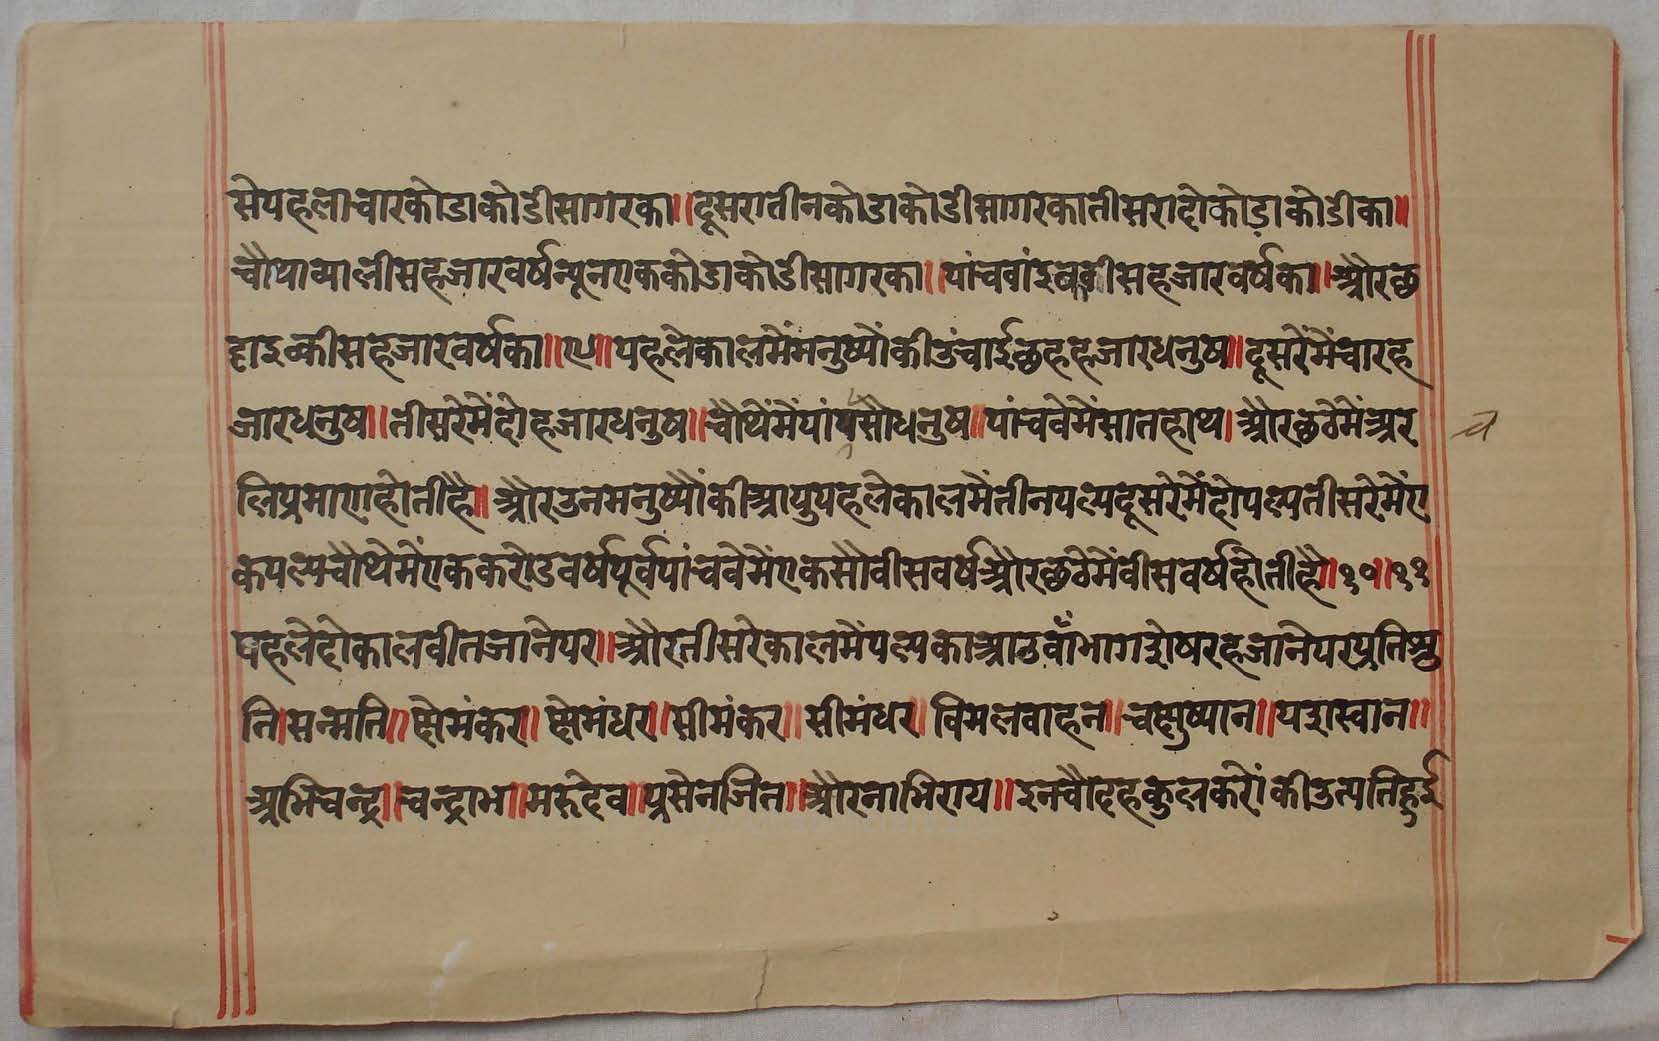 सेपहलाचारकोडाकोडीसागरका॥दूसरातीनकोडाकोडीसागरकातीसरादोकोड़ाकोडीका॥
चौथाब्यालीसहजारवर्षन्यूनएककोडाकोडीसागरका॥पांचवांइक्कीसहजारवर्षका॥औरछ
ट्ठाइक्कीसहजारवर्षका॥९॥पहलेकालमेंमनुष्योंकीउंचाईछहहजारधनुष॥दूसरेंमेंचारह
जारधनुष॥तीसरेमेंदोहजारधनुष॥चौथेंमेंपांचसौधनुष॥पांचवेमेंसातहाथ।औरछठेमेंअर
च
त्निप्रमाणहोतीहै॥औरउनमनुष्योंकीआयुपहलेकालमेंतीनपल्यदूसरेमेंदोपल्यतीसरेमेंए
कपल्यचौथेमेंएककरोडवर्षपूर्वपांचवेमेंएकसौवीसवर्षऔरछठेमेंवीसवर्षहोतीहै॥१०॥११
पहलेदोकालवीतजानेपर॥औरतीसरेकालमेंपल्यकाआठवाँभागशेषरहजानेपरप्रतिश्रु
ति।सन्मति॥क्षेमंकर॥क्षेमंधर॥सीमंकर॥सीमंधर॥विमलवाहन॥चक्षुष्मान॥यशस्वान॥
अभिचन्द्र॥चन्द्राभ॥मरूदेव॥प्रसेनजित॥औरनाभिराय॥इनचौदहकुलकरोंकीउत्पतिहुई